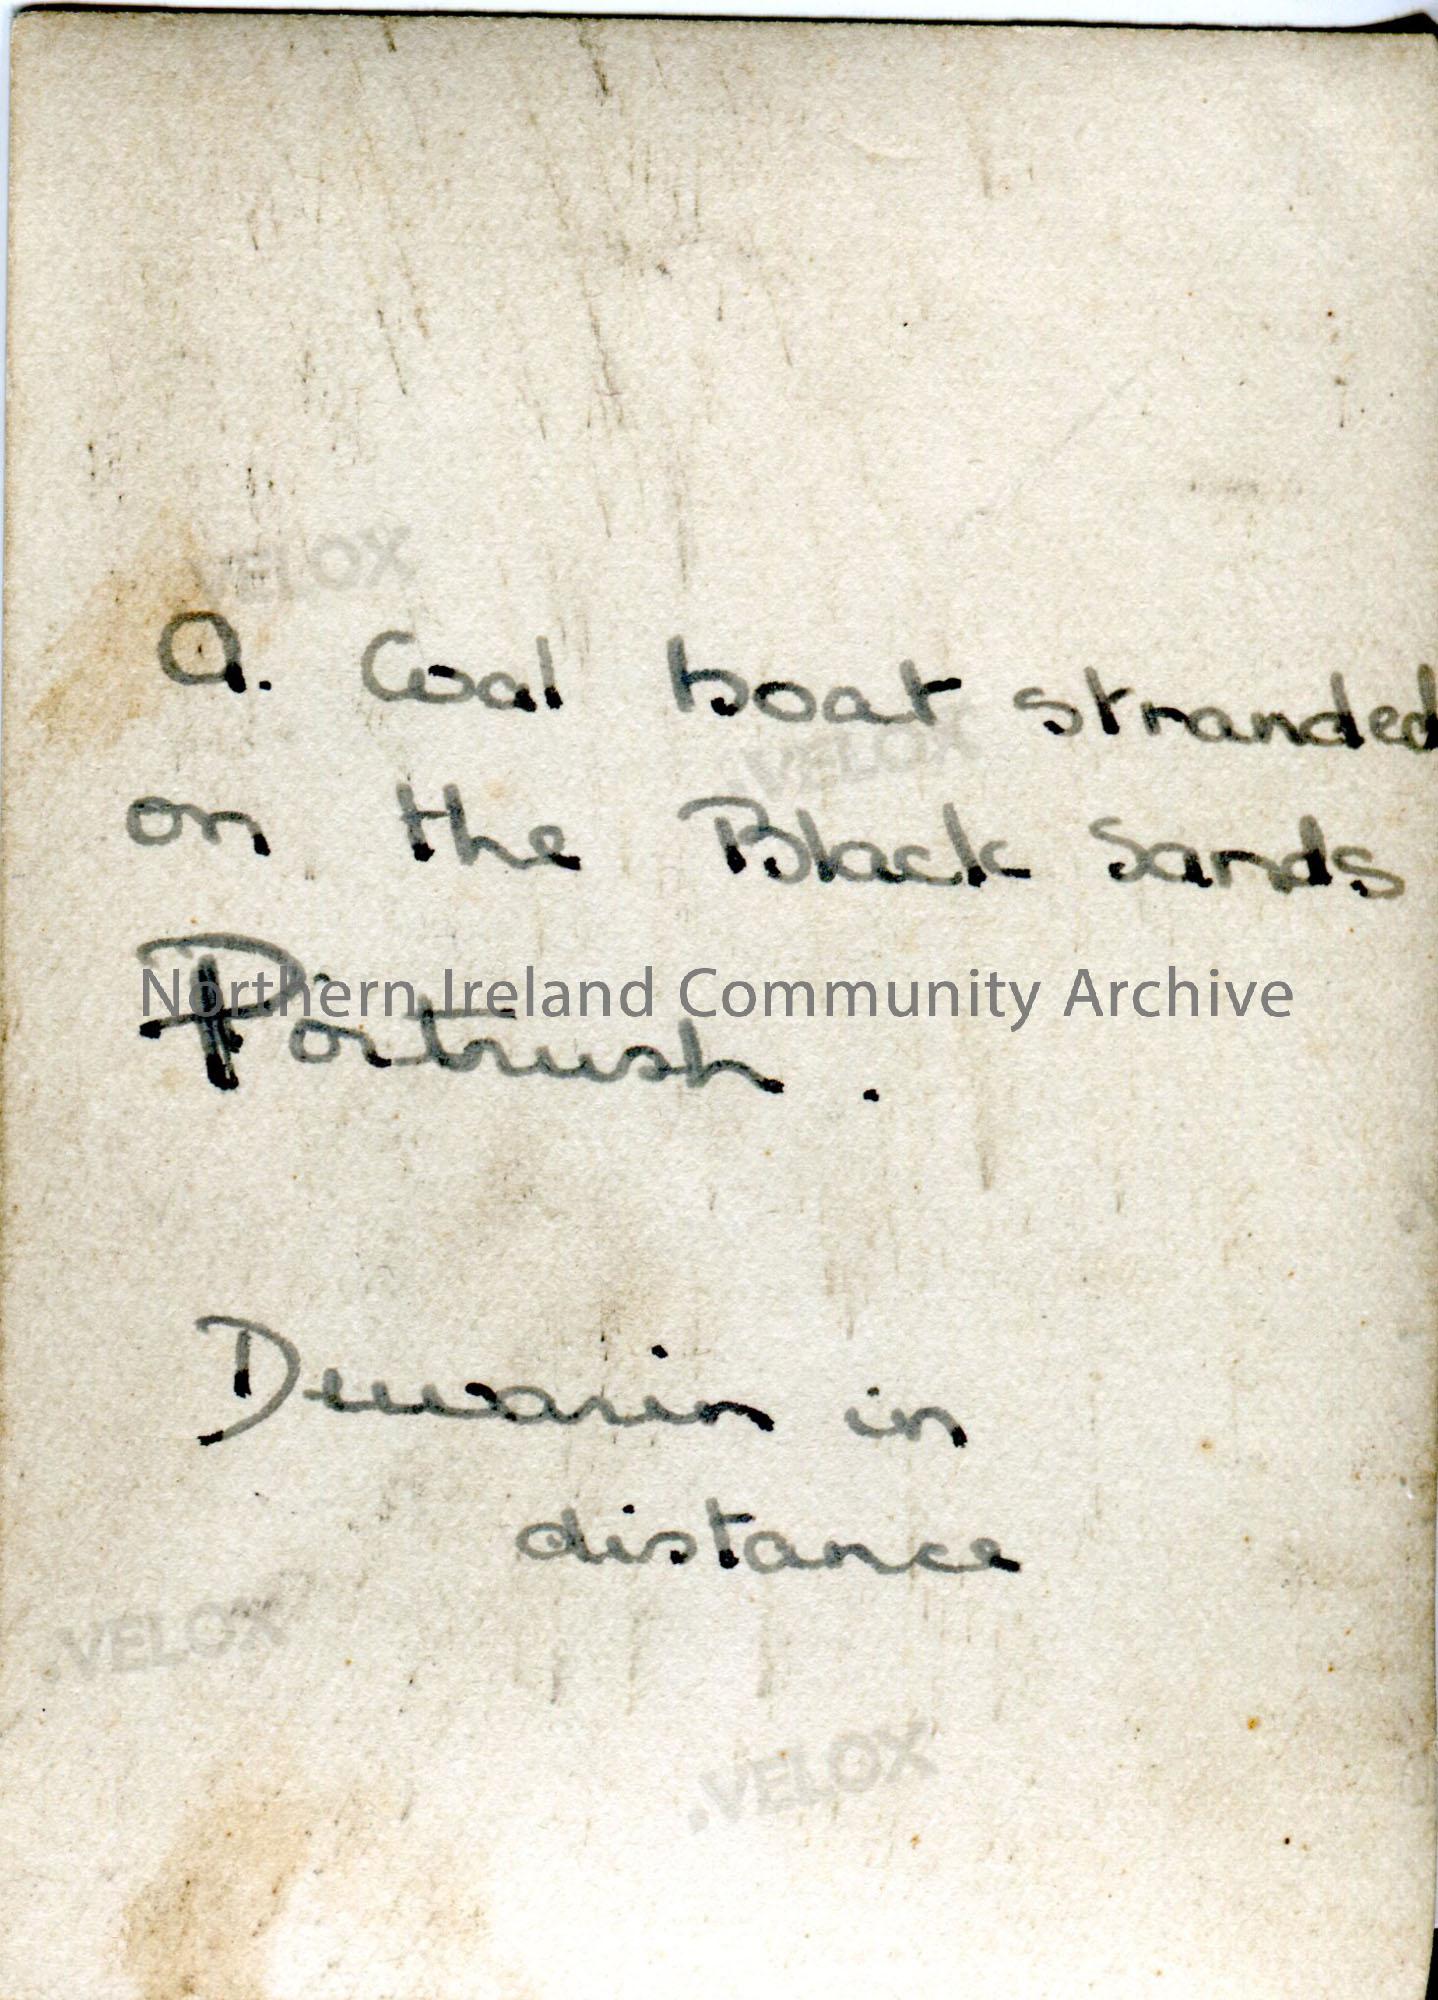 VELOX
A. Coal boat stranded
.VELOX
on the Black Sands
Northern Ireland Community Archive
Portrush .
Dewarin in
distance
.VELOX
.VELOX